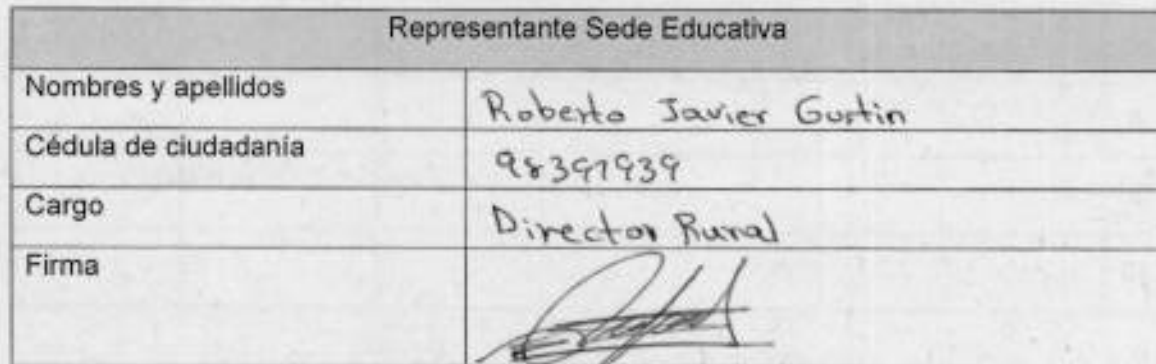 Representante Sede Educativa
Nombres y apellidos Roberto Javier Gustin
Cédula de ciudadanía 98391939
Cargo Director Rural
Firma